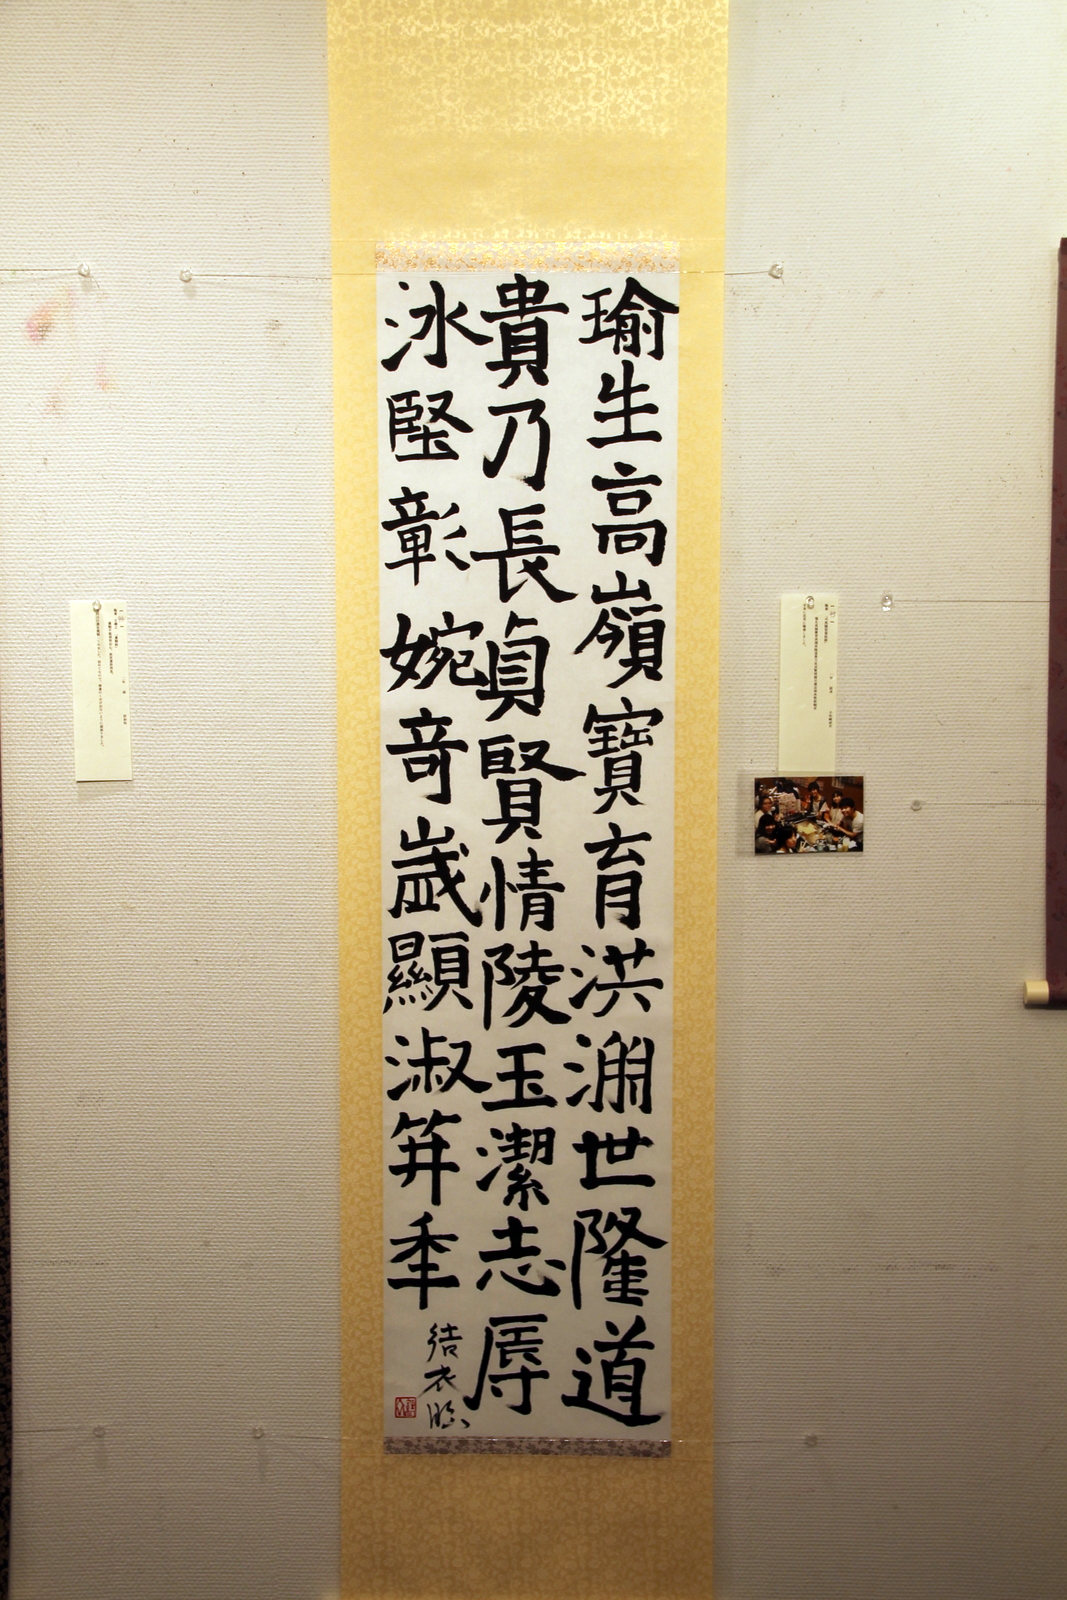 瑜生高嶺寶育洪淵世隆道
貴乃長貞賢情陵玉潔志辱
泳堅彰婉奇歲顯淑笄秊
結衣臨